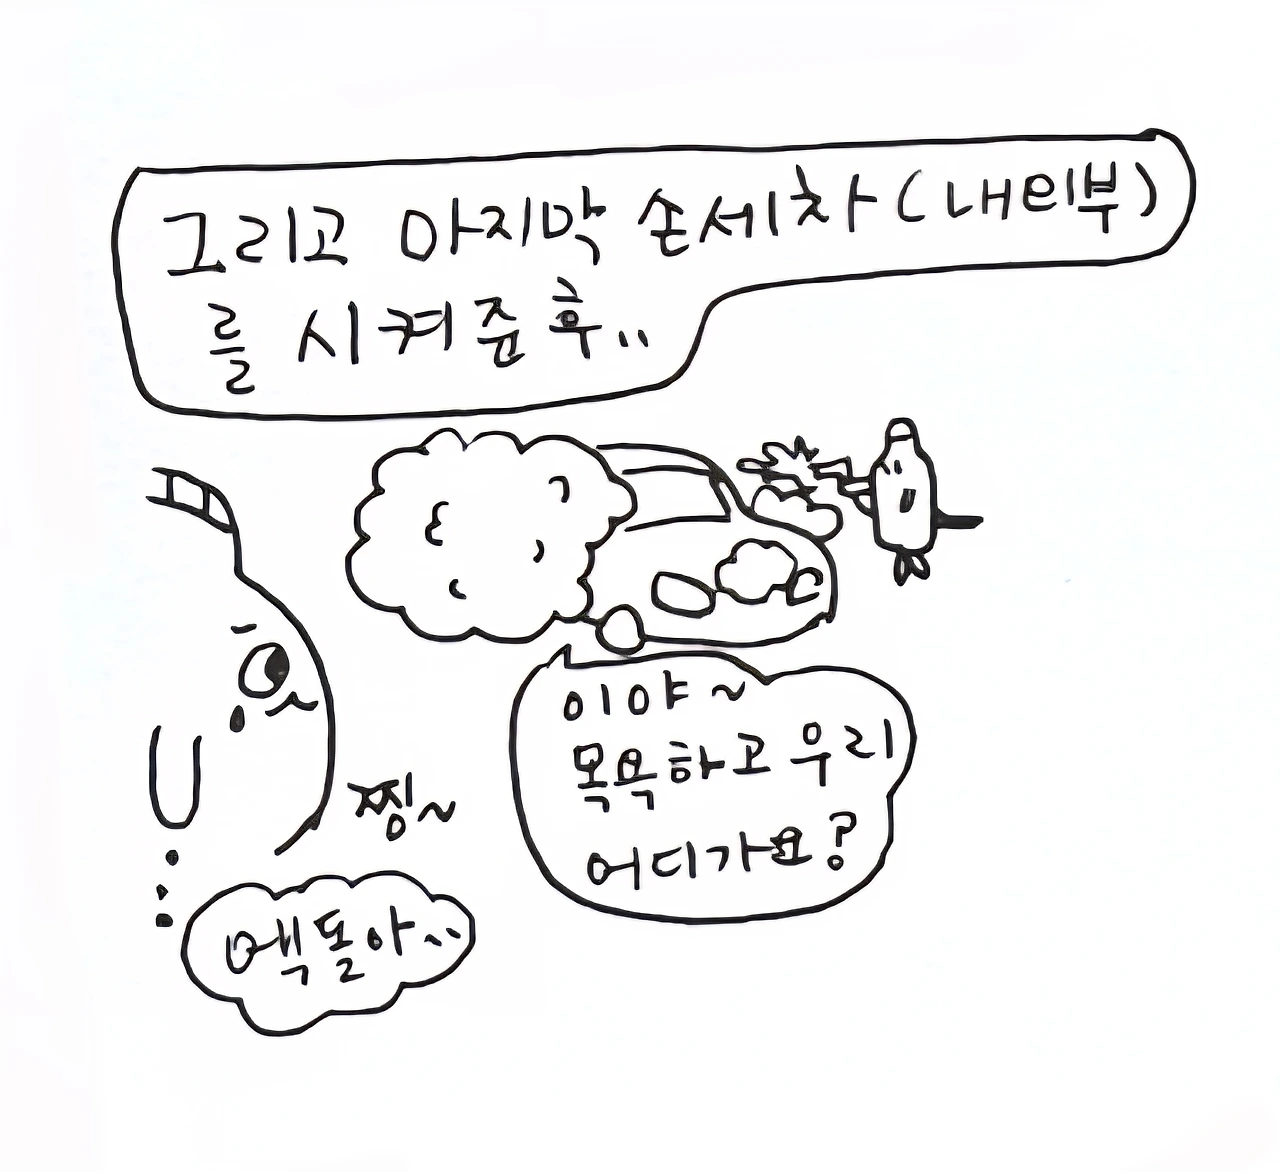 그리고 마지막 손세차(내외부)
를 시켜준 후..
이야~
목욕하고 우리
어디가요?
찡~
맥돌아..